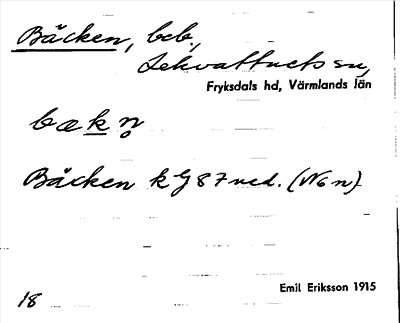 Bäcken, beb.,
Lekvattnets sn,
Fryksdals hd, Värmlands län
bækn̥
Bäcken kG87ned. (No n)
18
Emil Eriksson 1915